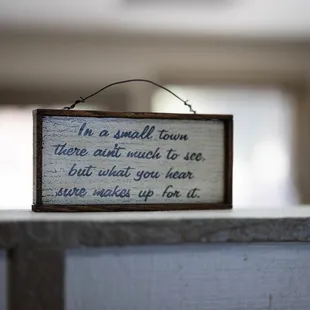 In a small town
there ain't much to see,
but what you hear
sure makes up for it.